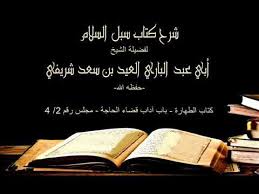 شرح كتاب سبل السلام
لفضيلة الشيخ
أبي عبد الباري العيد بن سعد شريفي
-حفظه الله-
كتاب الطهارة - باب آداب قضاء الحاجة - مجلس رقم 2/ 4